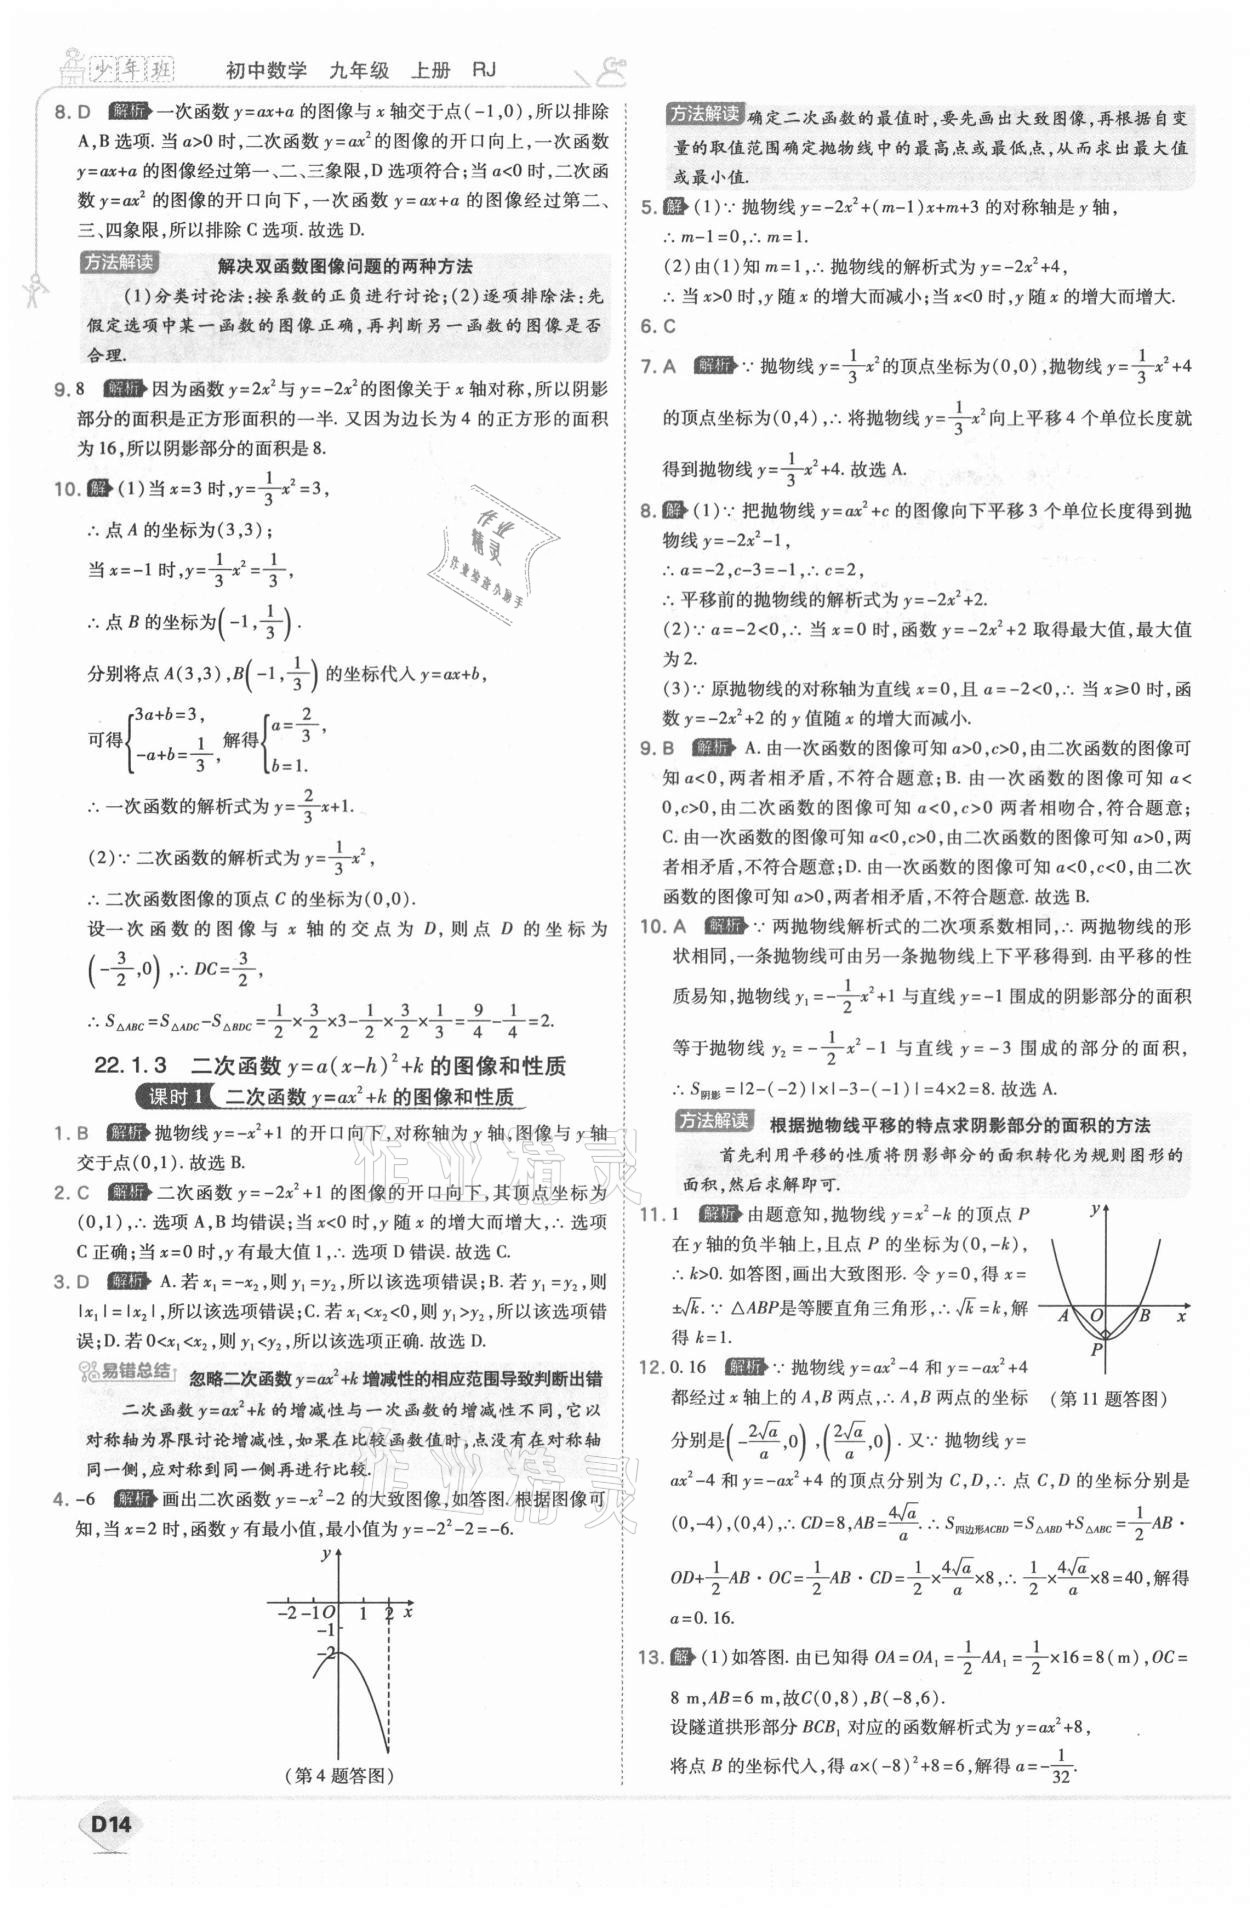 少年班 初中数学 九年级 上册 RJ
8. D 解析 一次函数 y=ax+a 的图像与 x 轴交于点(-1,0),所以排除
A,B选项. 当 a>0 时,二次函数 y=ax²的图像的开口向上,一次函数
y=ax+a 的图像经过第一、二、三象限,D选项符合;当 a<0 时,二次函
数 y=ax² 的图像的开口向下,一次函数 y=ax+a 的图像经过第二、
三、四象限,所以排除 C 选项. 故选 D.
方法解读 解决双函数图像问题的两种方法
(1)分类讨论法:按系数的正负进行讨论;(2)逐项排除法:先
假定选项中某一函数的图像正确,再判断另一函数的图像是否
合理.
9. 8 解析 因为函数 y=2x²与 y=-2x²的图像关于 x 轴对称,所以阴影
部分的面积是正方形面积的一半. 又因为边长为 4 的正方形的面积
为 16,所以阴影部分的面积是 8.
10. 解 (1)当 x=3 时,y=1/3x²=3,
∴点 A 的坐标为(3,3);
当 x=-1 时,y=1/3x²=1/3,
∴点 B 的坐标为(-1,1/3).
分别将点 A(3,3),B(-1,1/3)的坐标代入 y=ax+b,
可得{3a+b=3, -a+b=1/3, 解得{a=2/3, b=1.
∴一次函数的解析式为 y=2/3x+1.
(2)∵二次函数的解析式为 y=1/3x²,
∴二次函数图像的顶点 C 的坐标为(0,0).
设一次函数的图像与 x 轴的交点为 D,则点 D 的坐标为
(-3/2,0),∴DC=3/2,
∴S△ABC=S△ADC-S△BDC=1/2×3/2×3-1/2×3/2×1/3=9/4-1/4=2.
22.1.3 二次函数 y=a(x-h)²+k 的图像和性质
课时1 二次函数 y=ax²+k 的图像和性质
1. B 解析 抛物线 y=-x²+1 的开口向下,对称轴为 y 轴,图像与 y 轴
交于点(0,1). 故选 B.
2. C 解析 二次函数 y=-2x²+1 的图像的开口向下,其顶点坐标为
(0,1),∴选项 A,B 均错误;当 x<0 时,y 随 x 的增大而增大,∴选项
C 正确;当 x=0 时,y 有最大值 1,∴选项 D 错误. 故选 C.
3. D 解析 A. 若 x₁=-x₂,则 y₁=y₂,所以该选项错误;B. 若 y₁=y₂,则
|x₁|=|x₂|,所以该选项错误;C. 若 x₁<x₂<0,则 y₁>y₂,所以该选项错
误;D. 若 0<x₁<x₂,则 y₁<y₂,所以该选项正确. 故选 D.
易错总结 忽略二次函数 y=ax²+k 增减性的相应范围导致判断出错
二次函数 y=ax²+k 的增减性与一次函数的增减性不同,它以
对称轴为界限讨论增减性,如果在比较函数值时,点没有在对称轴
同一侧,应对称到同一侧再进行比较.
4. -6 解析 画出二次函数 y=-x²-2 的大致图像,如答图. 根据图像可
知,当 x=2 时,函数 y 有最小值,最小值为 y=-2²-2=-6.
y
-2 -1 O 1 2 x
-1
-2
(第 4 题答图)
D14
方法解读 确定二次函数的最值时,要先画出大致图像,再根据自变
量的取值范围确定抛物线中的最高点或最低点,从而求出最大值
或最小值.
5. 解 (1)∵抛物线 y=-2x²+(m-1)x+m+3 的对称轴是 y 轴,
∴m-1=0,∴m=1.
(2)由(1)知 m=1,∴抛物线的解析式为 y=-2x²+4,
∴当 x>0 时,y 随 x 的增大而减小;当 x<0 时,y 随 x 的增大而增大.
6. C
7. A 解析 ∵抛物线 y=1/3x²的顶点坐标为(0,0),抛物线 y=1/3x²+4
的顶点坐标为(0,4),∴将抛物线 y=1/3x²向上平移 4 个单位长度就
得到抛物线 y=1/3x²+4. 故选 A.
8. 解 (1)∵把抛物线 y=ax²+c 的图像向下平移 3 个单位长度得到抛
物线 y=-2x²-1,
∴a=-2,c-3=-1,∴c=2,
∴平移前的抛物线的解析式为 y=-2x²+2.
(2)∵a=-2<0,∴当 x=0 时,函数 y=-2x²+2 取得最大值,最大值
为 2.
(3)∵原抛物线的对称轴为直线 x=0,且 a=-2<0,∴当 x≥0 时,函
数 y=-2x²+2 的 y 值随 x 的增大而减小.
9. B 解析 A. 由一次函数的图像可知 a>0,c>0,由二次函数的图像可
知 a<0,两者相矛盾,不符合题意;B. 由一次函数的图像可知 a<
0,c>0,由二次函数的图像可知 a<0,c>0 两者相吻合,符合题意;
C. 由一次函数的图像可知 a<0,c>0,由二次函数的图像可知 a>0,两
者相矛盾,不符合题意;D. 由一次函数的图像可知 a<0,c<0,由二次
函数的图像可知 a>0,两者相矛盾,不符合题意. 故选 B.
10. A 解析 ∵两抛物线解析式的二次项系数相同,∴两抛物线的形
状相同,一条抛物线可由另一条抛物线上下平移得到. 由平移的性
质易知,抛物线 y₁=-1/2x²+1 与直线 y=-1 围成的阴影部分的面积
等于抛物线 y₂=-1/2x²-1 与直线 y=-3 围成的部分的面积,
∴S阴影=|2-(-2)|×|-3-(-1)|=4×2=8. 故选 A.
方法解读 根据抛物线平移的特点求阴影部分的面积的方法
首先利用平移的性质将阴影部分的面积转化为规则图形的
面积,然后求解即可.
11. 1 解析 由题意知,抛物线 y=x²-k 的顶点 P
在 y 轴的负半轴上,且点 P 的坐标为(0,-k),
∴k>0. 如答图,画出大致图形. 令 y=0,得 x=
±√k. ∵△ABP是等腰直角三角形,∴√k=k,解
得 k=1.
y
A O B x
P
(第 11 题答图)
12. 0.16 解析 ∵抛物线 y=ax²-4 和 y=-ax²+4
都经过 x 轴上的 A,B 两点,∴A,B 两点的坐标
分别是(-2√a/a,0),(2√a/a,0). 又∵抛物线 y=
ax²-4 和 y=-ax²+4 的顶点分别为 C,D,∴点 C,D 的坐标分别是
(0,-4),(0,4),∴CD=8,AB=4√a/a. ∴S四边形ACBD=S△ABD+S△ABC=1/2AB·
OD+1/2AB·OC=1/2AB·CD=1/2×4√a/a×8,∴1/2×4√a/a×8=40,解得
a=0.16.
13. 解 (1)如答图. 由已知得 OA=OA₁=1/2AA₁=1/2×16=8(m),OC=
8 m,AB=6 m,故C(0,8),B(-8,6).
设隧道拱形部分 BCB₁ 对应的函数解析式为 y=ax²+8,
将点 B 的坐标代入,得 a×(-8)²+8=6,解得 a=-1/32.
作业
精灵
作业检查小助手
作业精灵
作业精灵